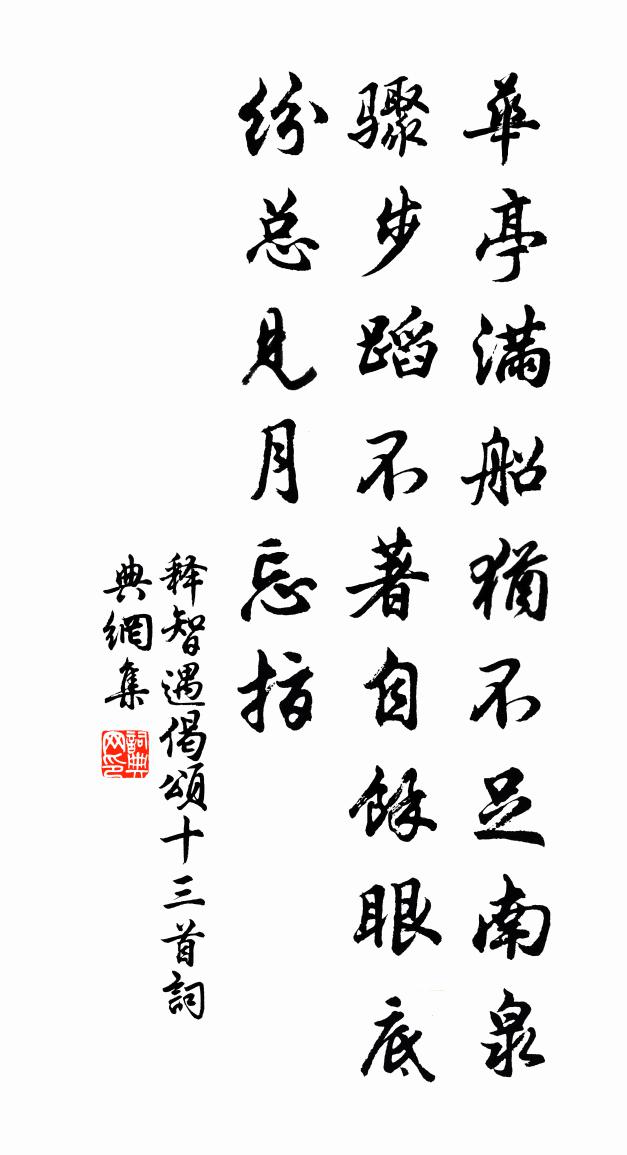 華亭滿船猶不足南泉
驟步蹈不著自餘眼底
紛总見月忘指
释智遇偈頌十三首詞
典網集
詞典
网印